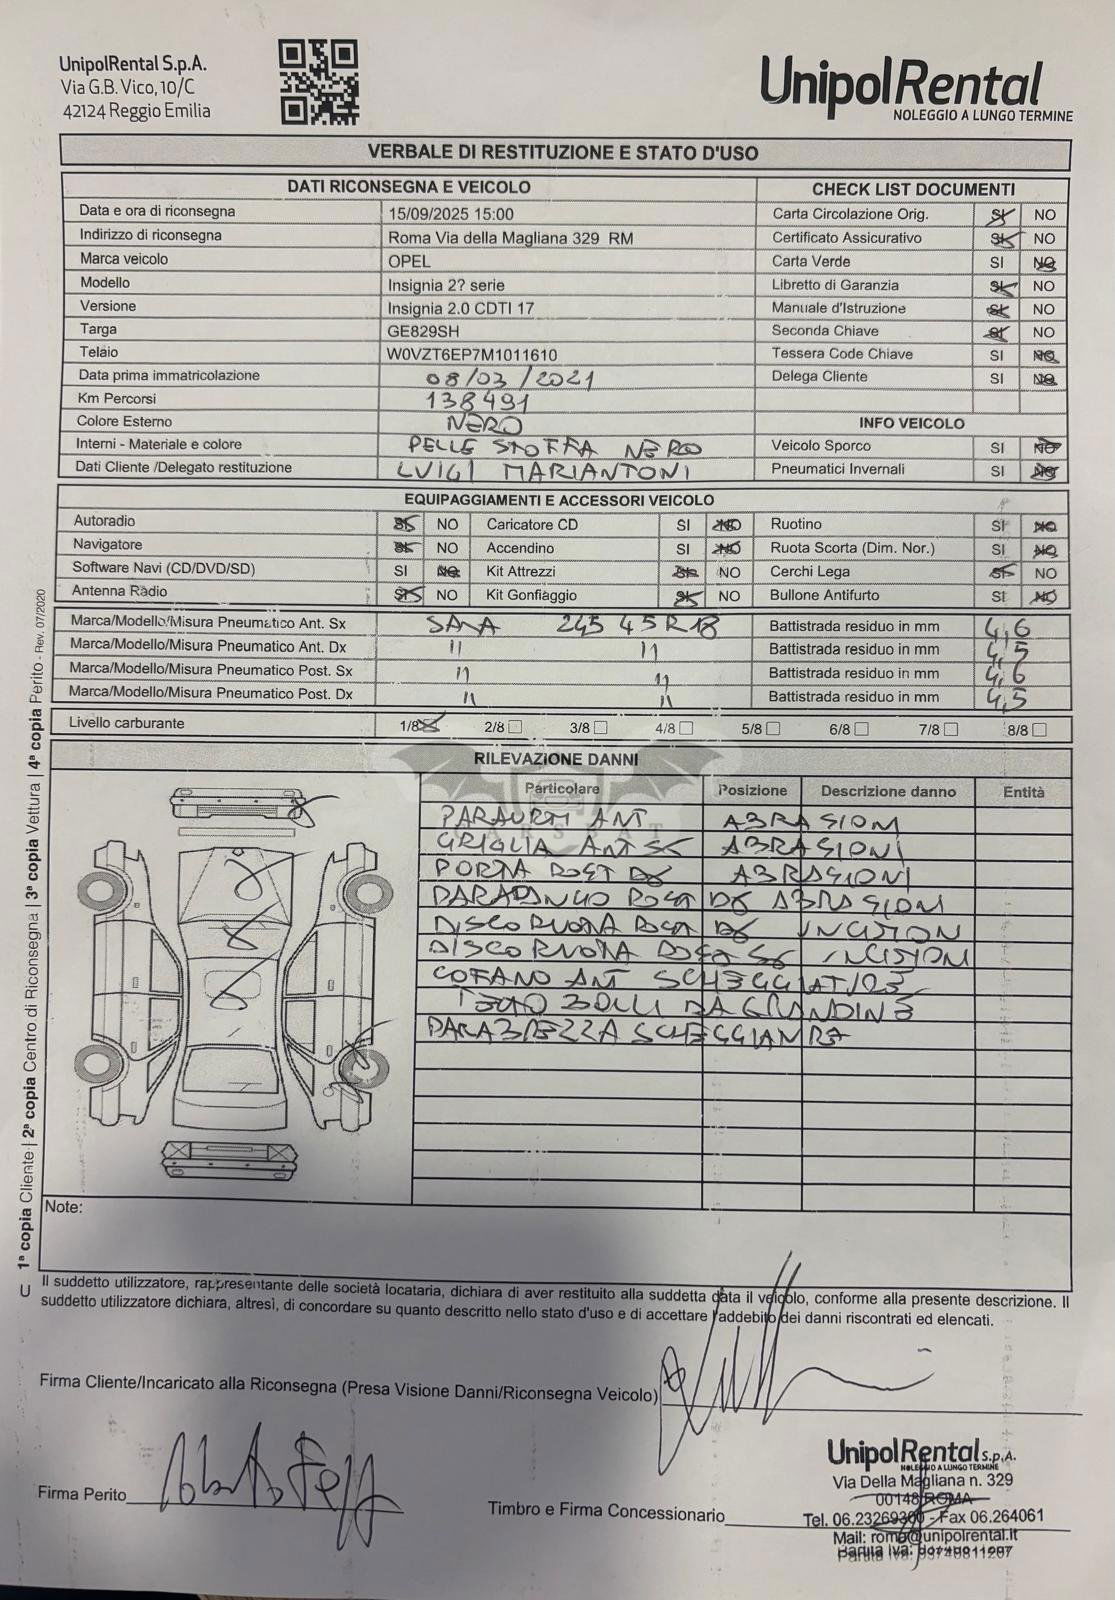 UnipolRental S.p.A.
Via G.B. Vico, 10/C
42124 Reggio Emilia
UnipolRental
NOLEGGIO A LUNGO TERMINE
VERBALE DI RESTITUZIONE E STATO D'USO
DATI RICONSEGNA E VEICOLO CHECK LIST DOCUMENTI
Data e ora di riconsegna 15/09/2025 15:00 Carta Circolazione Orig. SI NO
Indirizzo di riconsegna Roma Via della Magliana 329 RM Certificato Assicurativo SI NO
Marca veicolo OPEL Carta Verde SI NO
Modello Insignia 2? serie Libretto di Garanzia SI NO
Versione Insignia 2.0 CDTI 17 Manuale d'Istruzione SI NO
Targa GE829SH Seconda Chiave SI NO
Telaio W0VZT6EP7M1011610 Tessera Code Chiave SI NO
Data prima immatricolazione 08/03/2021 Delega Cliente SI NO
Km Percorsi 138491
Colore Esterno NERO INFO VEICOLO
Interni - Materiale e colore PELLE STOFFA NERO Veicolo Sporco SI NO
Dati Cliente /Delegato restituzione LUIGI MARIANTONI Pneumatici Invernali SI NO
EQUIPAGGIAMENTI E ACCESSORI VEICOLO
Autoradio SI NO Caricatore CD SI NO Ruotino SI NO
Navigatore SI NO Accendino SI NO Ruota Scorta (Dim. Nor.) SI NO
Software Navi (CD/DVD/SD) SI NO Kit Attrezzi SI NO Cerchi Lega SI NO
Antenna Radio SI NO Kit Gonfiaggio SI NO Bullone Antifurto SI NO
Marca/Modello/Misura Pneumatico Ant. Sx 245 45 R 18 Battistrada residuo in mm 4,6
Marca/Modello/Misura Pneumatico Ant. Dx 11 11 Battistrada residuo in mm 4,5
Marca/Modello/Misura Pneumatico Post. Sx 11 11 Battistrada residuo in mm 4,6
Marca/Modello/Misura Pneumatico Post. Dx 11 11 Battistrada residuo in mm 4,5
Livello carburante 1/8 2/8 3/8 4/8 5/8 6/8 7/8 8/8
RILEVAZIONE DANNI
Particolare Posizione Descrizione danno Entità
PARAURTI ANT ABRASIONI
GRIGLIA ANT SX ABRASIONI
PORTA POST DX ABRASIONI
PARAFANGO POST DX ABRASIONI
DISCO RUOTA POST DX INCISIONI
DISCO RUOTA POST SX INCISIONI
COFANO ANT
TETTO BOLLI DA GRANDINE
PARABREZZA
CARSBAT
Note:
Il suddetto utilizzatore, rappresentante delle società locataria, dichiara di aver restituito alla suddetta data il veicolo, conforme alla presente descrizione. Il
suddetto utilizzatore dichiara, altresì, di concordare su quanto descritto nello stato d'uso e di accettare l'addebito dei danni riscontrati ed elencati.
Firma Cliente/Incaricato alla Riconsegna (Presa Visione Danni/Riconsegna Veicolo)
Firma Perito
Timbro e Firma Concessionario
UnipolRental S.p.A.
NOLEGGIO A LUNGO TERMINE
Via Della Magliana n. 329
00148 ROMA
Tel. 06.23269300 - Fax 06.264061
Mail: roma@unipolrental.it
1ª copia Cliente | 2ª copia Centro di Riconsegna | 3ª copia Vettura | 4ª copia Perito - Rev. 07/2020